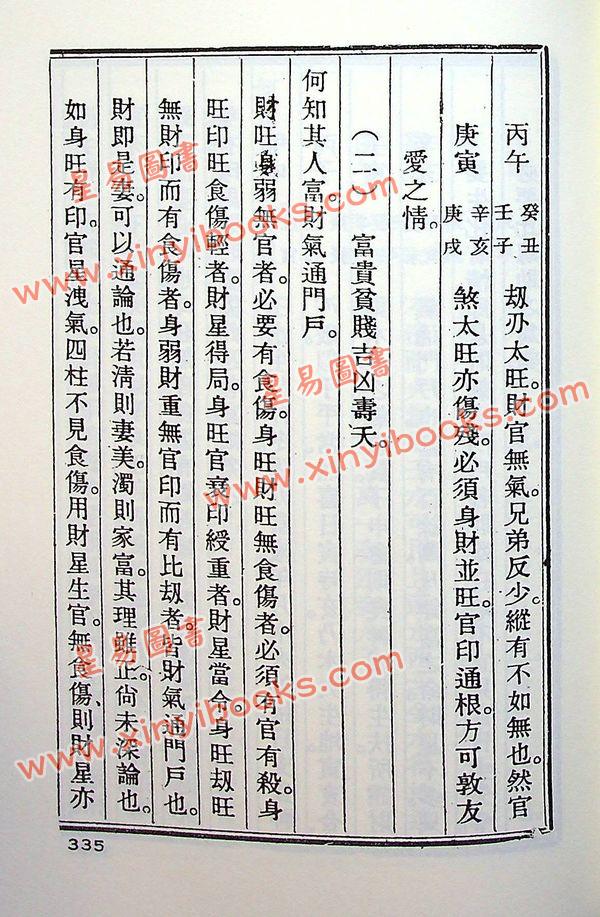 丙午 癸丑 壬子 刼刃太旺。財官無氣。兄弟反少。縱有不如無也。然官
庚寅 辛亥 庚戌 煞太旺亦傷殘。必須身財並旺。官印通根。方可敦友
愛之情。
（二）富貴貧賤吉凶壽夭。
何知其人富。財氣通門戶。
財旺身弱無官者。必要有食傷。身旺財旺無食傷者。必須有官有殺。身
旺印旺食傷輕者。財星得局。身旺官衰印綬重者。財星當令。身旺刼旺
無財印而有食傷者。身弱財重無官印而有比刼者。皆財氣通門戶也。
財即是妻。可以通論也。若淸則妻美。濁則家富。其理雖正。尙未深論也。
如身旺有印。官星洩氣。四柱不見食傷。用財星生官。無食傷、則財星亦
335
星易圖書
www.xinyibooks.com
星易圖書
www.xinyibooks.com
星易圖書
www.xinyibooks.com